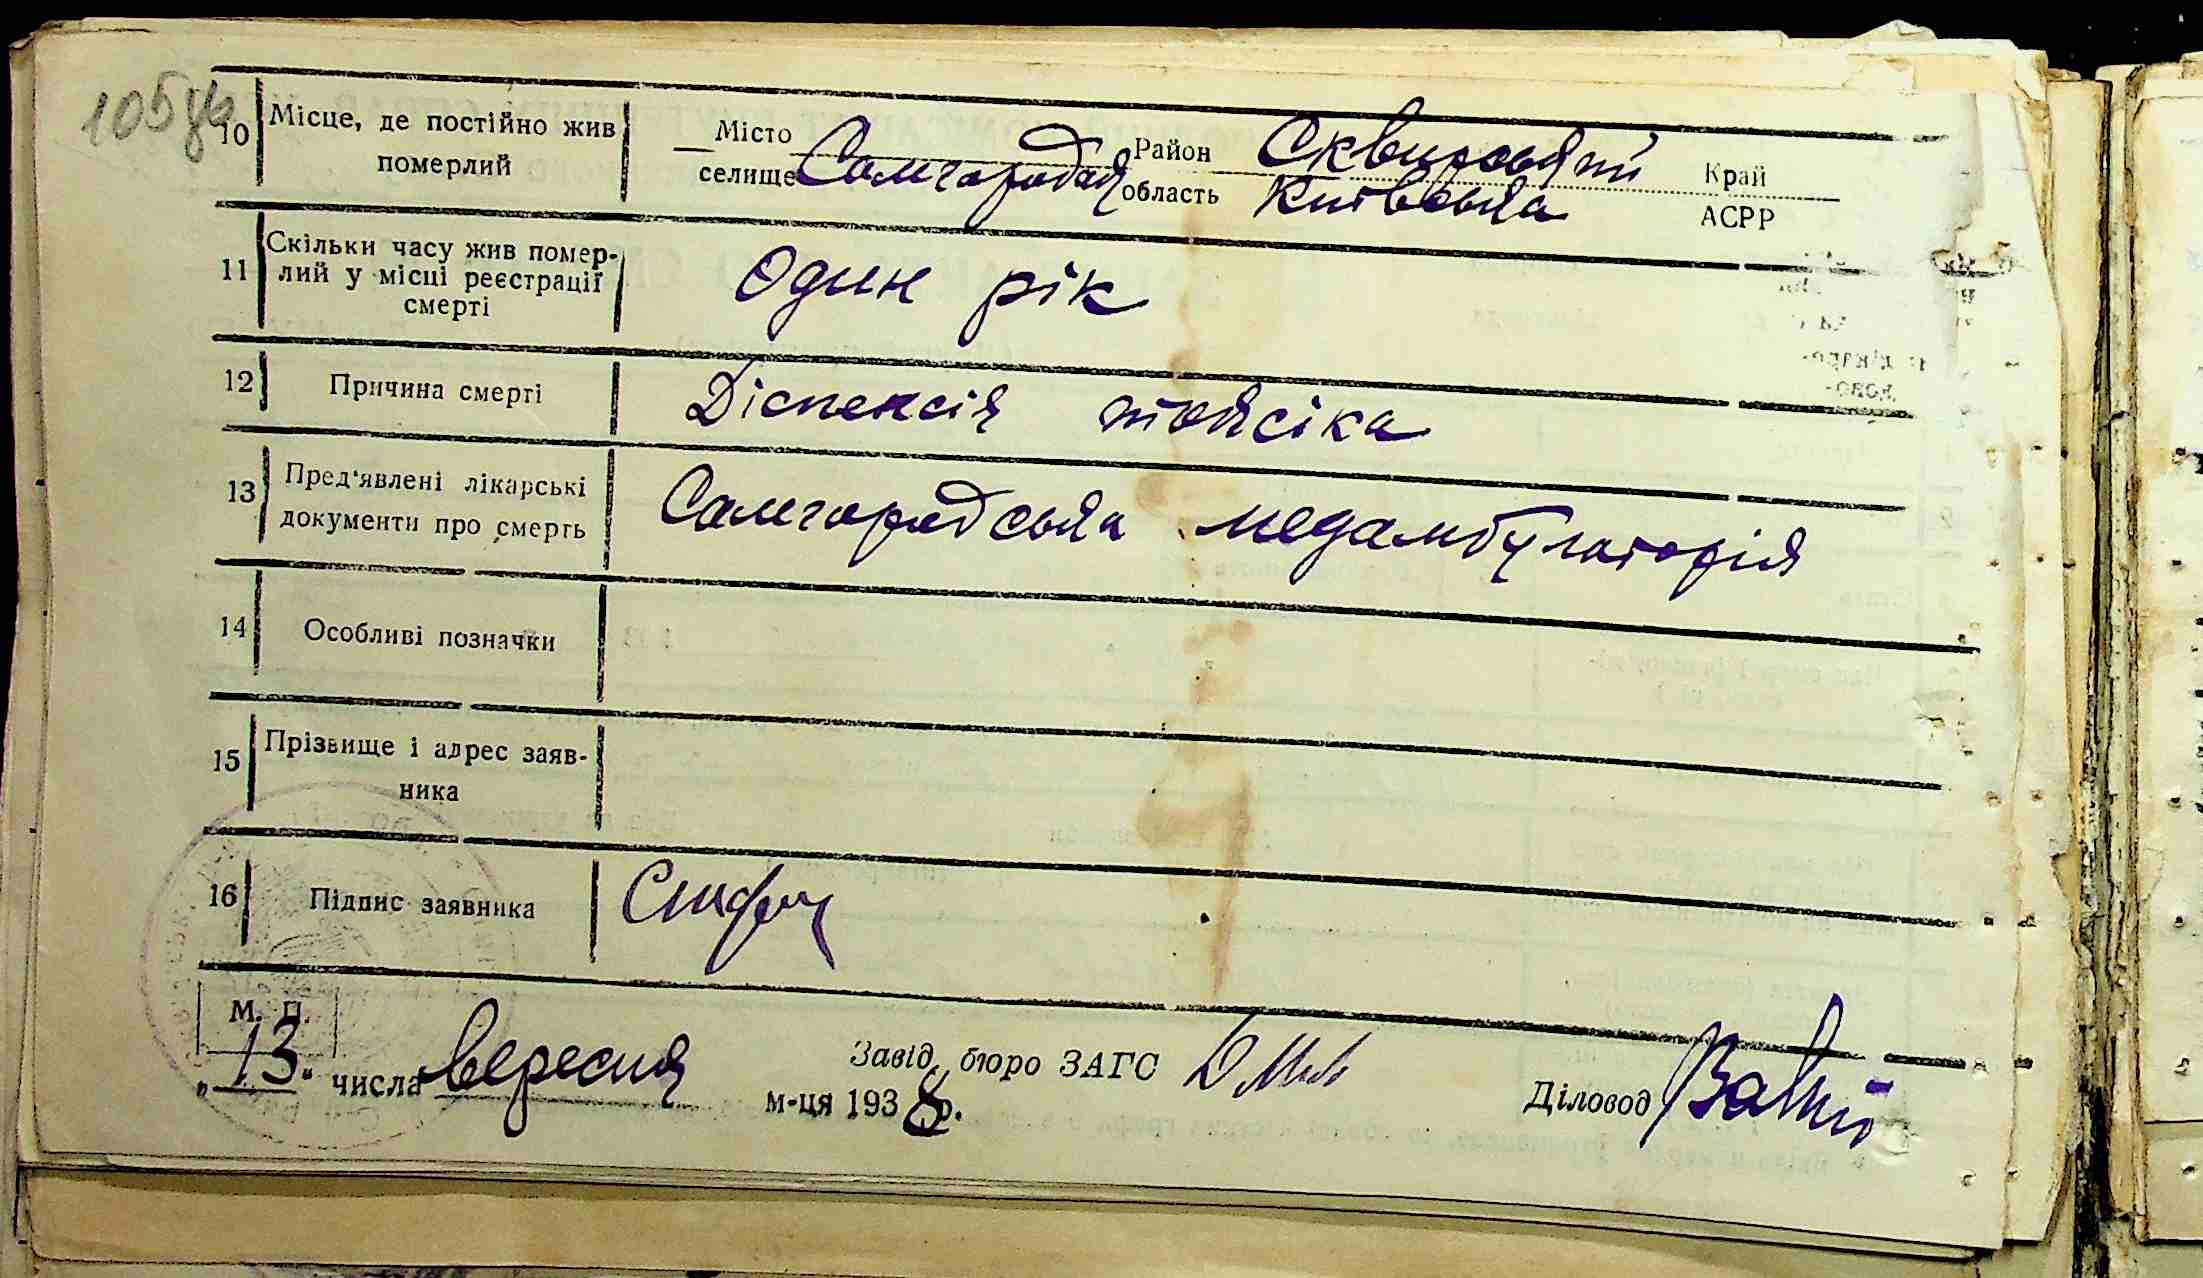 105зв
10 Місце, де постійно жив померлий
Місто селище Самгородок Район Сквирський область Київська Край АСРР
11 Скільки часу жив помер-
лий у місці реєстрації
смерті
Один рік
12 Причина смерті Діспепсія токсіка
13 Пред'явлені лікарські
документи про смерть
Самгородська медамбулаторія
14 Особливі позначки
15 Прізвище і адрес заяв-
ника
16 Підпис заявника
М. П.
„13“ числа вересня м-ця 1938 р.
Завід. бюро ЗАГС
Діловод